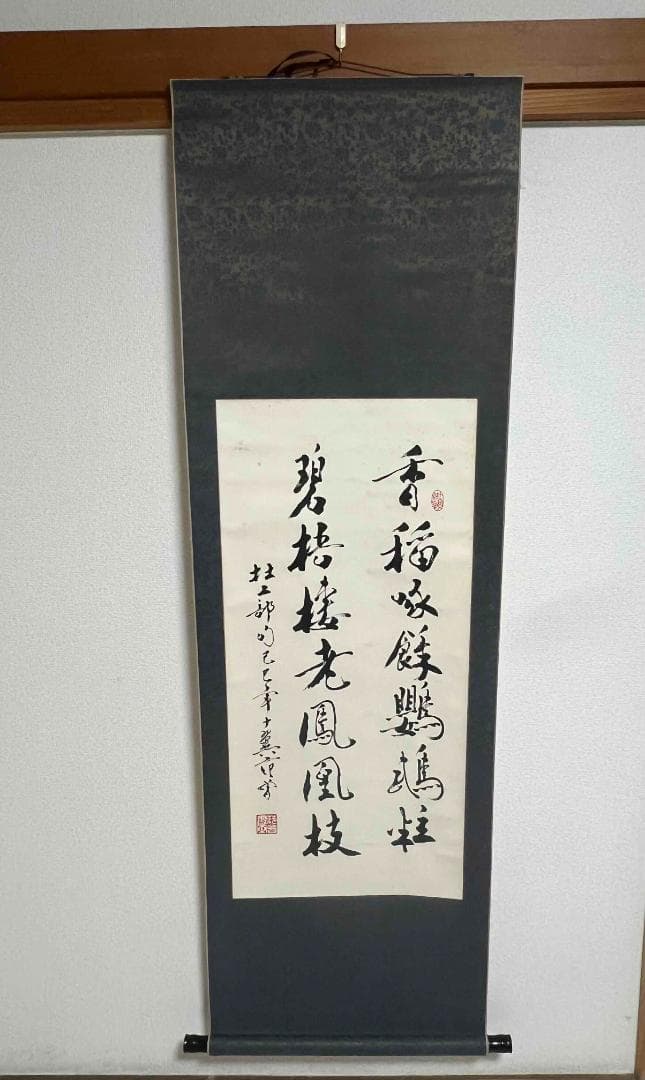 香稻啄餘鸚鵡粒
碧梧棲老鳳凰枝
杜工部句己巳年十翼范曾